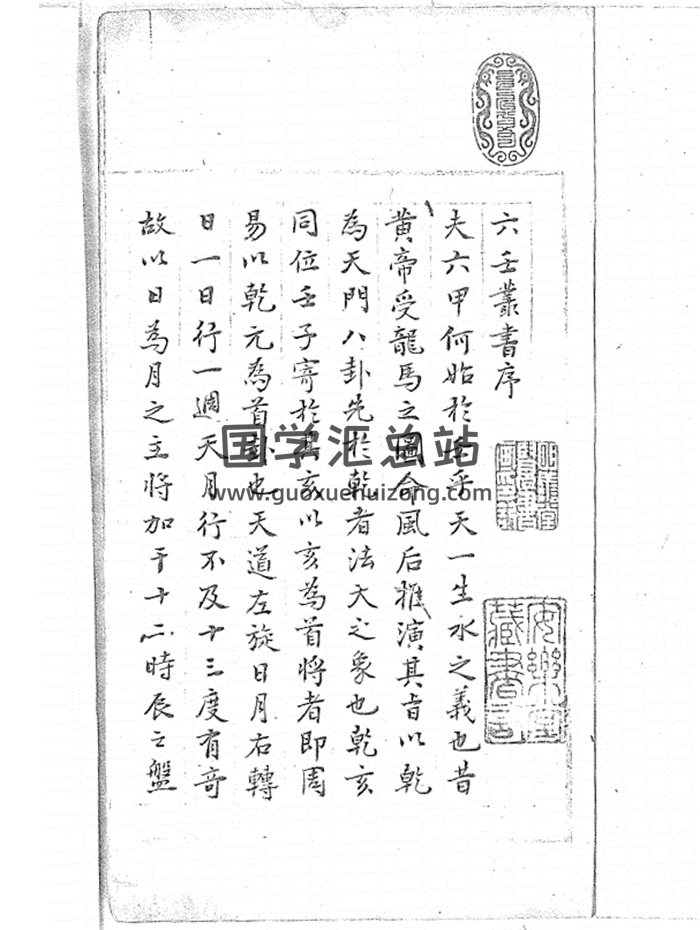 六壬叢書序
夫六甲何始於壬乎天一生水之義也昔
黃帝受龍馬之圖命風后推演其旨以乾
為天門八卦先於乾者法天之象也乾亥
同位壬子寄於其亥以亥為首將者即周
易以乾元為首卦也天道左旋日月右轉
日一日行一週天月行不及十三度有奇
故以日為月之主將加于十二時辰之盤
安樂堂
藏書記
国学汇总站
www.guoxuehuizong.com